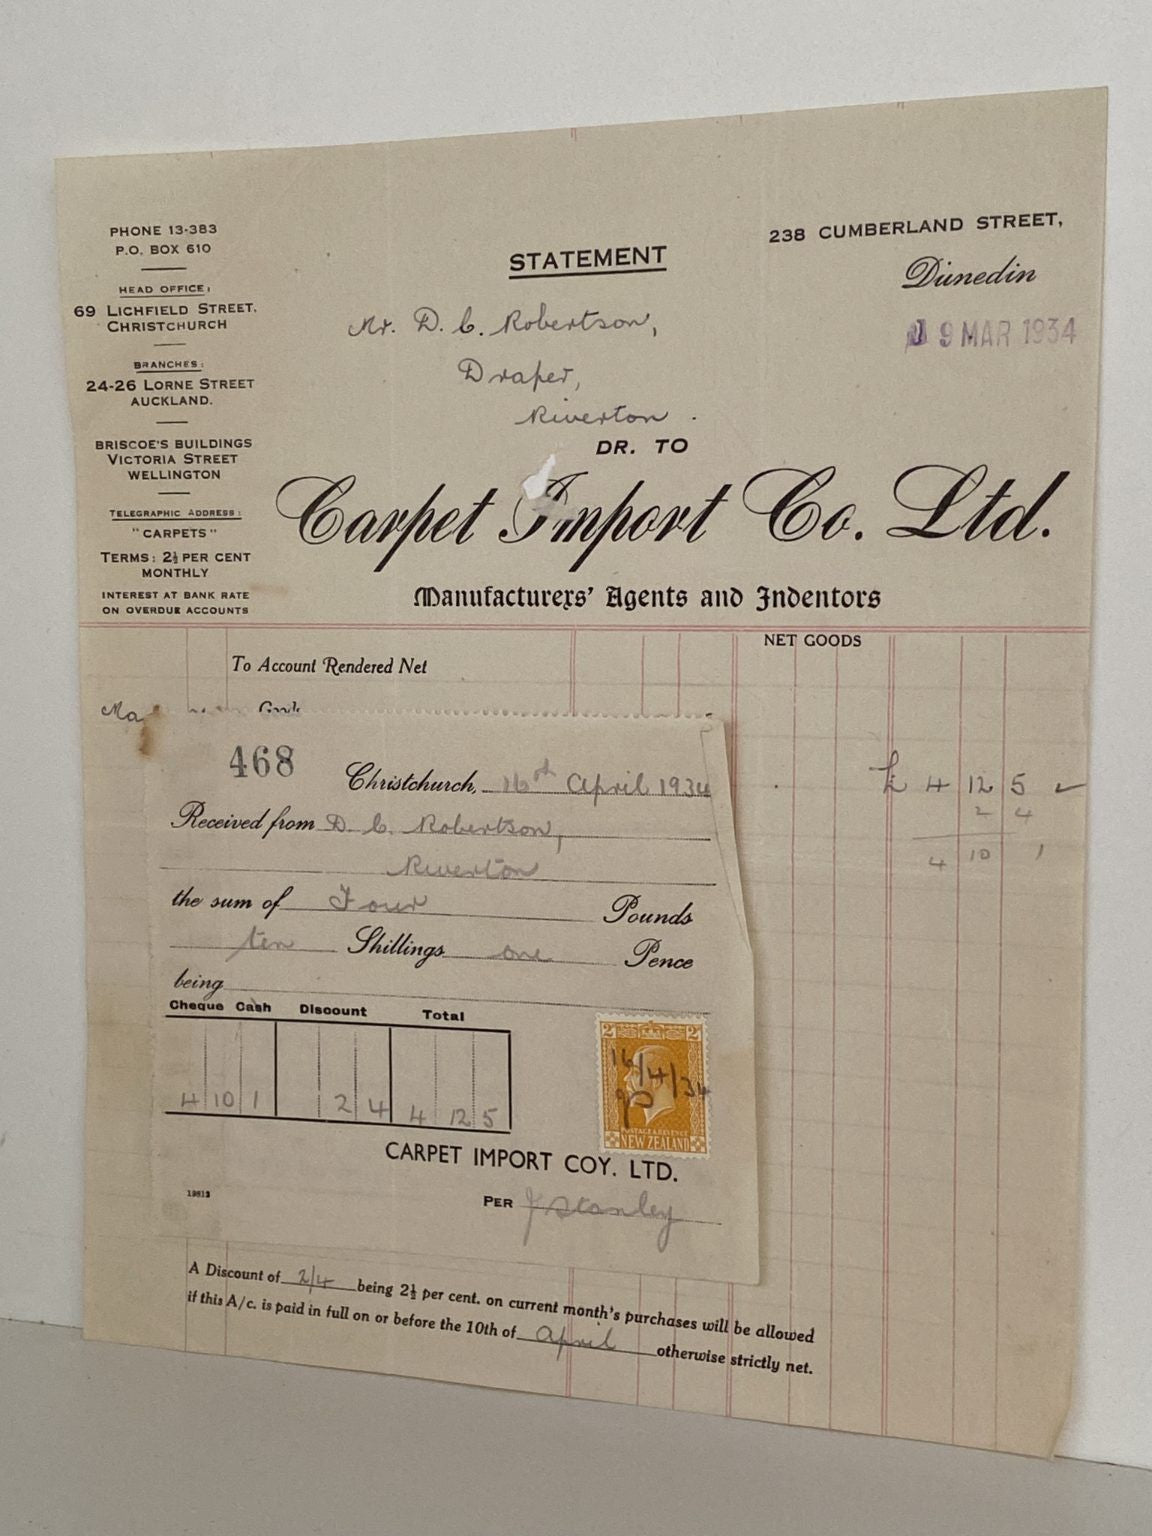 PHONE 13-383
P.O. BOX 610
HEAD OFFICE:
69 LICHFIELD STREET,
CHRISTCHURCH
BRANCHES:
24-26 LORNE STREET
AUCKLAND.
BRISCOE'S BUILDINGS
VICTORIA STREET
WELLINGTON
TELEGRAPHIC ADDRESS:
"CARPETS"
TERMS: 2½ PER CENT
MONTHLY
INTEREST AT BANK RATE
ON OVERDUE ACCOUNTS
STATEMENT
238 CUMBERLAND STREET,
Dunedin
9 MAR 1934
Mr. D. C. Robertson,
Draper,
Riverton.
DR. TO
Carpet Import Co. Ltd.
Manufacturers' Agents and Indentors
NET GOODS
To Account Rendered Net
Goods
£ 4 12 5
2 4
4 10 1
468
Christchurch, 16th April 1934
Received from D. C. Robertson,
Riverton
the sum of Four Pounds
ten Shillings one Pence
being
Cheque Cash Discount Total
4 10 1 2 4 4 12 5
2 2
16/4/34
POSTAGE & REVENUE
NEW ZEALAND
CARPET IMPORT COY. LTD.
PER J Stanley
A Discount of 2/4 being 2½ per cent. on current month's purchases will be allowed
if this A/c. is paid in full on or before the 10th of April otherwise strictly net.